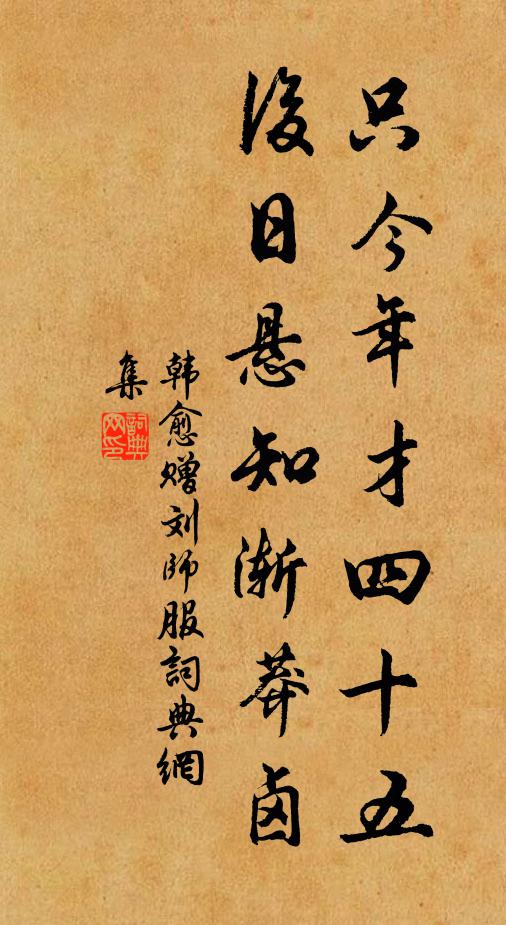 只今年才四十五
後日悬知渐莽卤
韩愈赠刘师服詞典網
集
詞典
网印